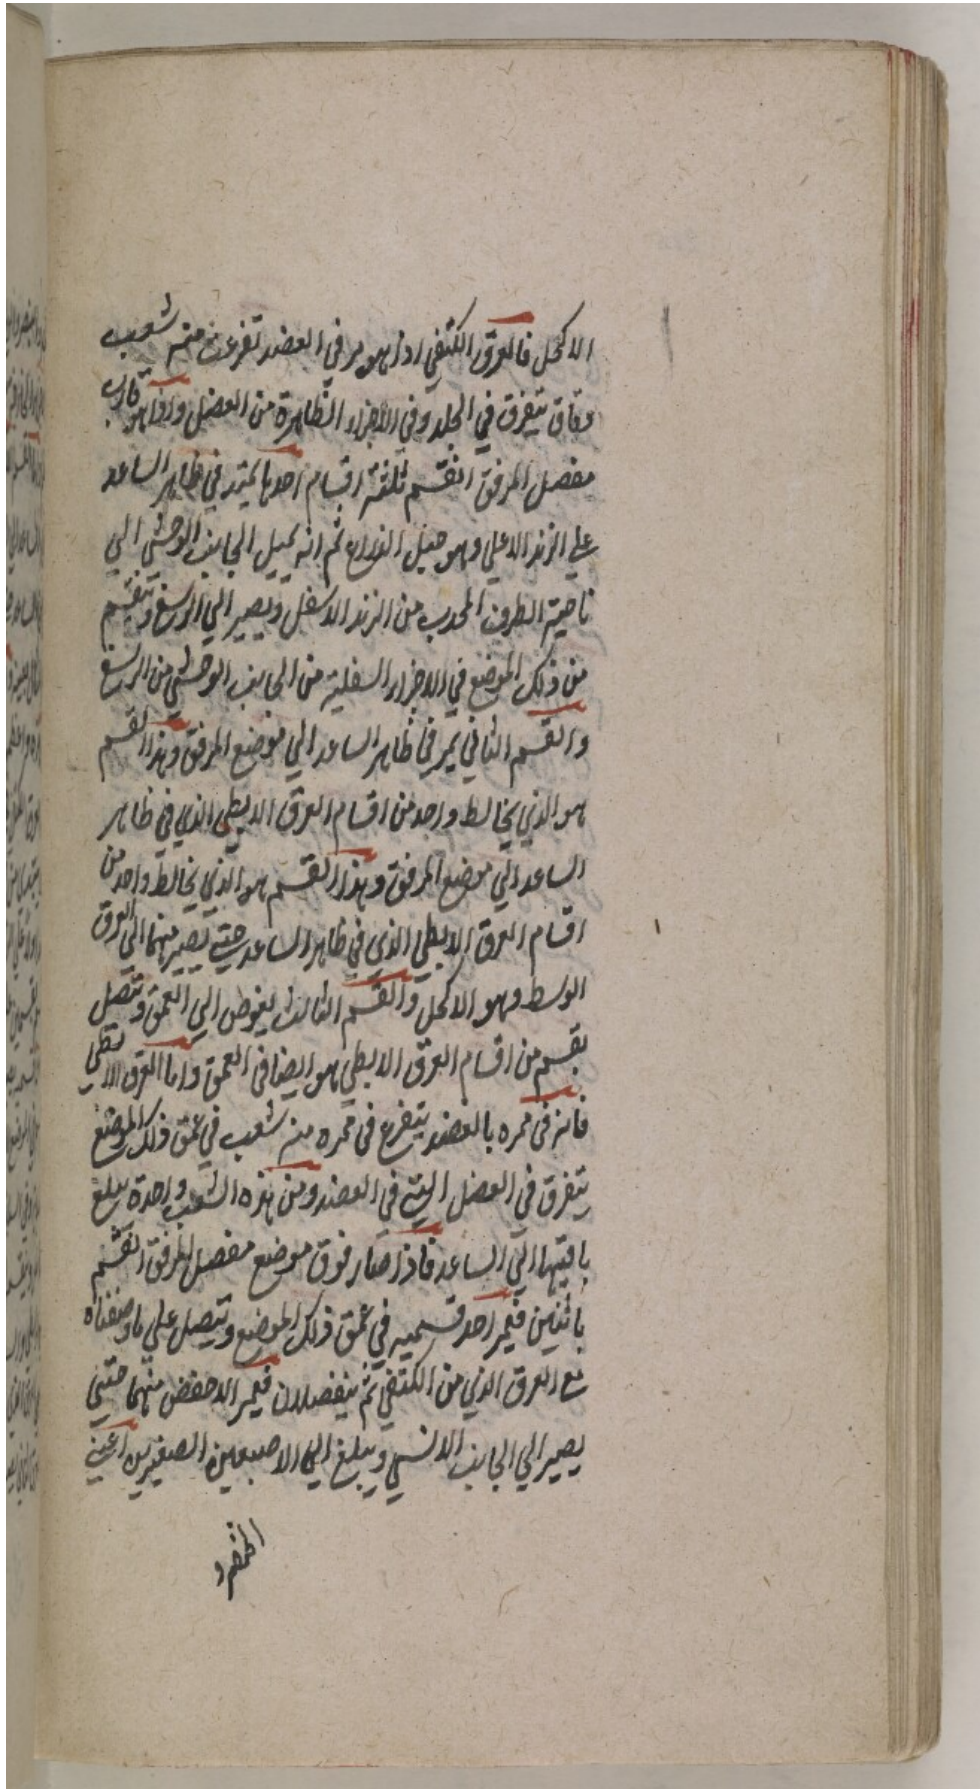 الاكحل فالعرق الكتفي اذا هو مر في العضد تفرعت منه شعب
دقاق يتفرق في الجلد وفي الاجزاء الظاهرة من العضل واذا هو قارب
مفصل المرفق انقسم ثلثة اقسام احدها يمتد في ظاهر الساعد
علي الزند الاعلي وهو حبل الذراع ثم انه يميل الي الجانب الوحشي الي
ناحية الطرف المحدب من الزند الاسفل ويصير الي الرسغ وينقسم
من ذلك الموضع في الاجزاء السفلية من الجانب الوحشي من الرسغ
والقسم الثاني يمر في ظاهر الساعد الي موضع المرفق وهذا القسم
هو الذي يخالط واحد من اقسام العرق الابطي الذي في ظاهر
الساعد الي موضع المرفق وهذا القسم هو الذي يخالط واحد من
اقسام العرق الابطي الذي في ظاهر الساعد حتي يصير منهما العرق
الوسط وهو الاكحل والقسم الثالث يغوص الي العمق ويتصل
بقسم من اقسام العرق الابطي هو ايضا في العمق واما العرق الابطي
فانه في ممره بالعضد يتفرع في ممره منه شعب في عمق ذلك الموضع
يتفرق في العضل التي في العضد ومن هذه الشعب واحدة يبلغ
باقيها الي الساعد فاذا صار فوق موضع مفصل المرفق انقسم
باثنين فيمر احد قسميه في عمق ذلك الموضع ويتصل علي ما وصفناه
مع العرق الذي من الكتفي ثم ينفصلان فيمر الاخفض منهما حتي
يصير الي الجانب الانسي ويبلغ الي الاصبعين الصغيرين اعني
الخنصر و